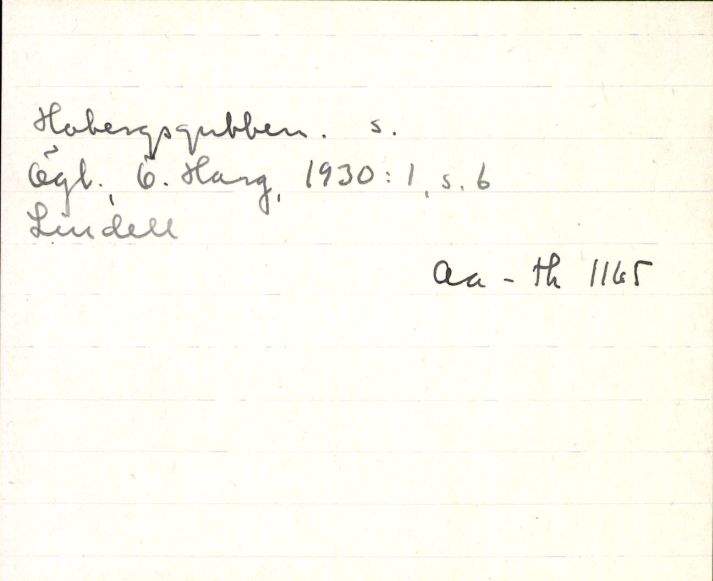 Hobergsgubben. s.
Ögl., Ö. Harg, 1930:1, s. 6
Lindell
Aa - th 1165